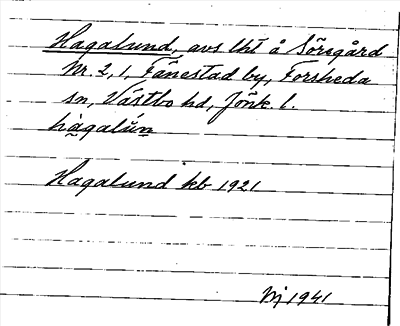 Hagalund, avs lht å Sörsgård
Nr. 2, 1, Fånestad by, Forsheda
sn, Västbo hd, Jönk. l.
hàgalún
Hagalund kb 1921
Nj 1941